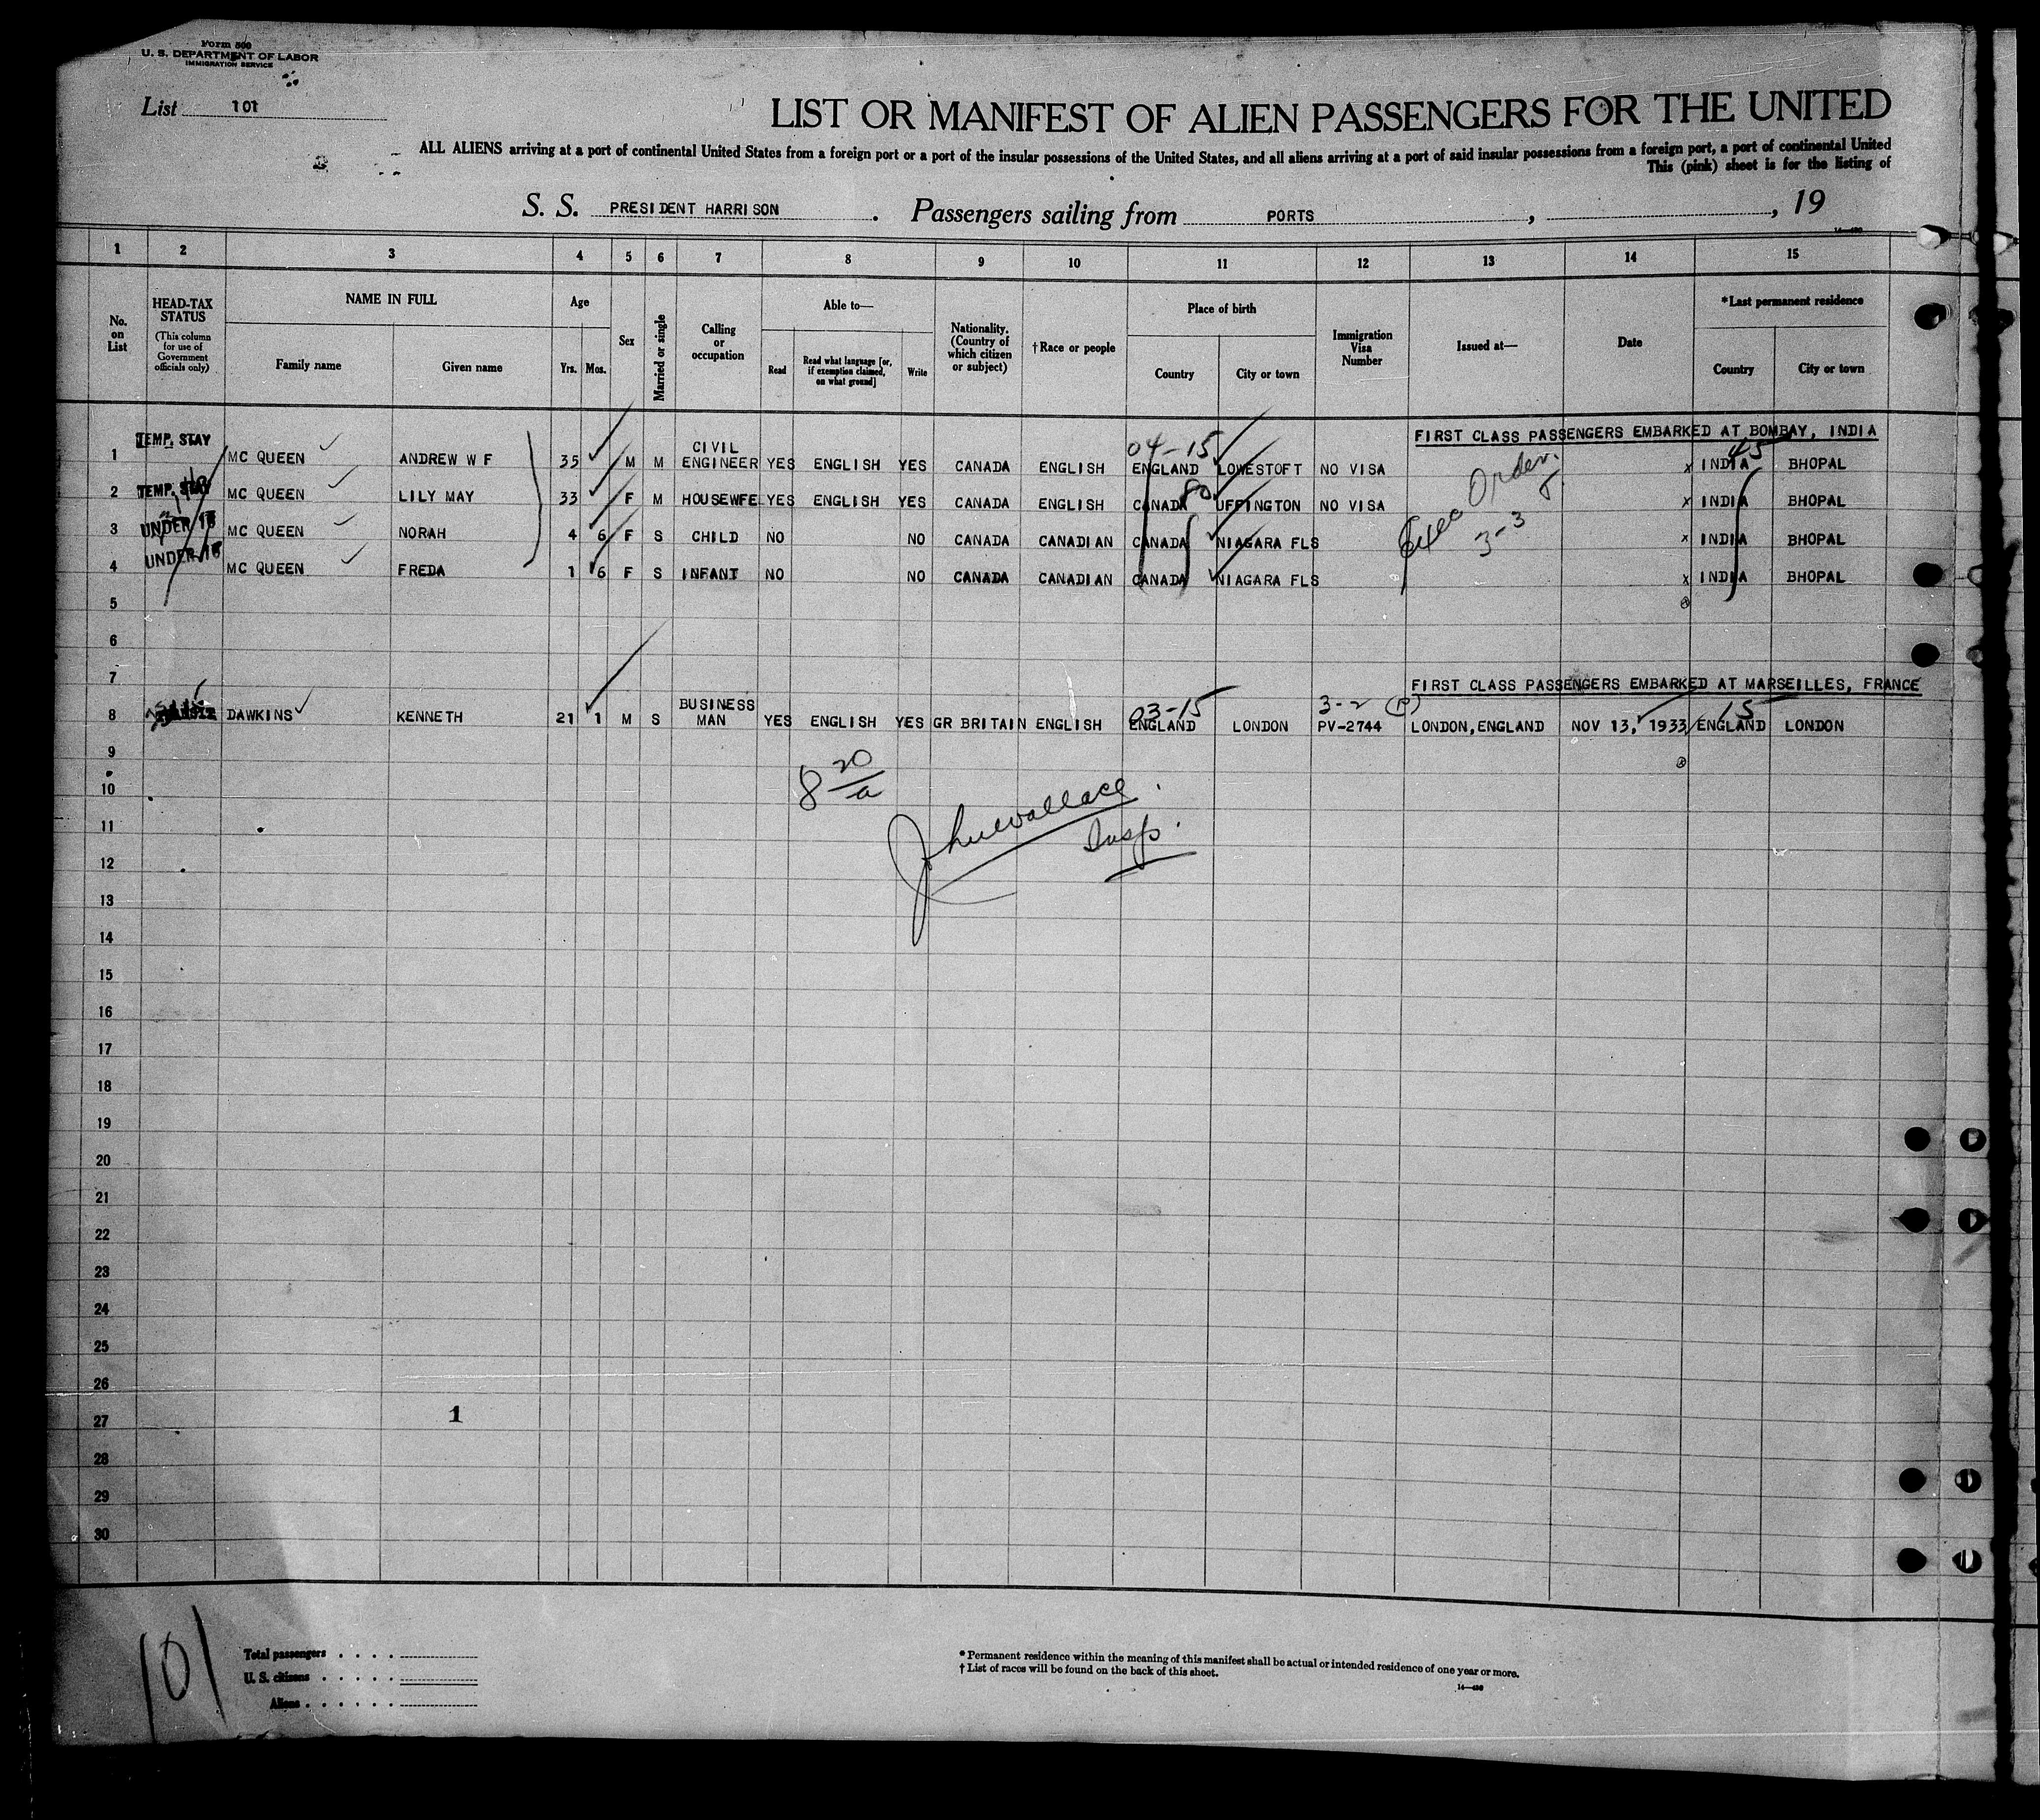 Form 500
U. S. DEPARTMENT OF LABOR
IMMIGRATION SERVICE
List 101
LIST OR MANIFEST OF ALIEN PASSENGERS FOR THE UNITED
ALL ALIENS arriving at a port of continental United States from a foreign port or a port of the insular possessions of the United States, and all aliens arriving at a port of said insular possessions from a foreign port, a port of continental United
This (pink) sheet is for the listing of
S. S. PRESIDENT HARRISON . Passengers sailing from PORTS , , 19
1 2 3 4 5 6 7 8 9 10 11 12 13 14 15
No. on List
HEAD-TAX STATUS
(This column for use of Government officials only)
NAME IN FULL
Family name Given name
Age
Yrs. Mos.
Sex
Married or single
Calling or occupation
Able to—
Read Read what language [or, if exemption claimed, on what ground] Write
Nationality. (Country of which citizen or subject)
†Race or people
Place of birth
Country City or town
Immigration Visa Number
Issued at—
Date
*Last permanent residence
Country City or town
FIRST CLASS PASSENGERS EMBARKED AT BOMBAY, INDIA
04-15 45
1 TEMP. STAY MC QUEEN ANDREW W F 35 M M CIVIL ENGINEER YES ENGLISH YES CANADA ENGLISH ENGLAND LOWESTOFT NO VISA x INDIA BHOPAL
2 TEMP. STAY MC QUEEN LILY MAY 33 F M HOUSEWFE YES ENGLISH YES CANADA ENGLISH CANADA 80 UFFINGTON NO VISA x INDIA BHOPAL
Exec Order.
3-3
3 UNDER 16 MC QUEEN NORAH 4 6 F S CHILD NO NO CANADA CANADIAN CANADA NIAGARA FLS x INDIA BHOPAL
4 UNDER 16 MC QUEEN FREDA 1 6 F S INFANT NO NO CANADA CANADIAN CANADA NIAGARA FLS x INDIA BHOPAL
5
6
7 FIRST CLASS PASSENGERS EMBARKED AT MARSEILLES, FRANCE
03-15 3-2 (P) 15
8 DAWKINS KENNETH 21 1 M S BUSINESS MAN YES ENGLISH YES GR BRITAIN ENGLISH ENGLAND LONDON PV-2744 LONDON, ENGLAND NOV 13, 1933 ENGLAND LONDON
9
10
8 20/a
John Wallace.
Insp.
11
12
13
14
15
16
17
18
19
20
21
22
23
24
25
26
27 1
28
29
30
101
Total passengers . . . .
U. S. citizens . . . . .
Aliens . . . . . .
* Permanent residence within the meaning of this manifest shall be actual or intended residence of one year or more.
† List of races will be found on the back of this sheet.